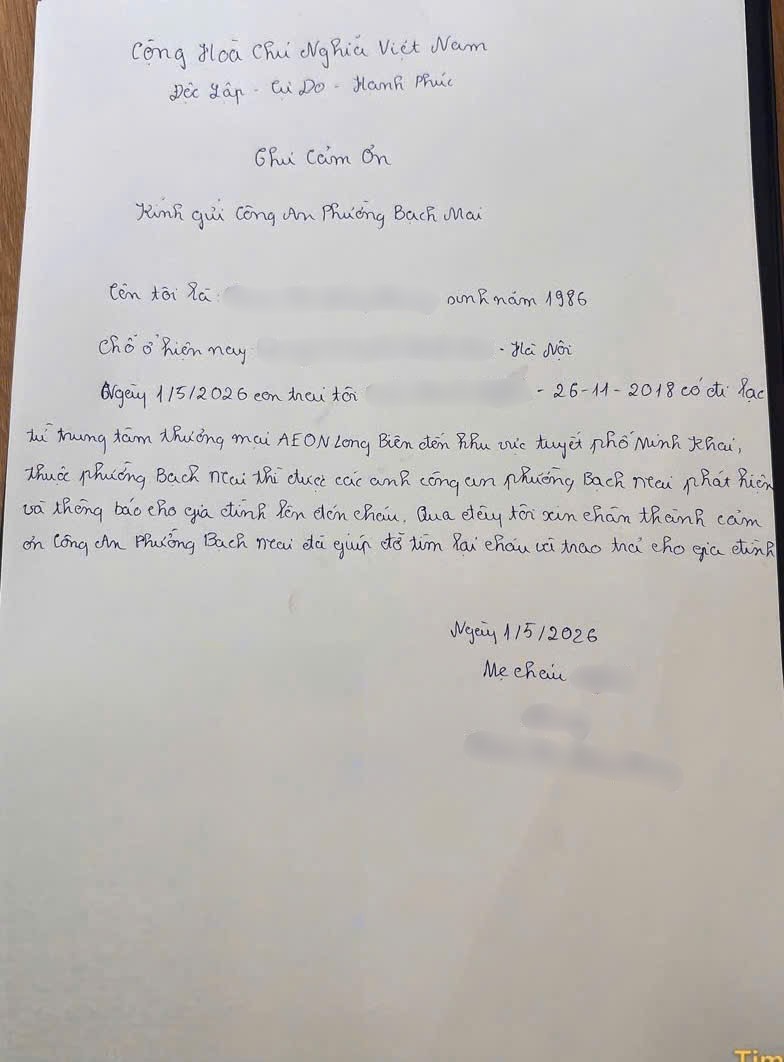 Cộng Hoà Chủ Nghĩa Việt Nam
Độc Lập - Tự Do - Hạnh Phúc
Thư Cảm Ơn
Kính gửi Công An Phường Bạch Mai
Tên tôi là: sinh năm 1986
Chỗ ở hiện nay - Hà Nội
Ngày 1/5/2026 con trai tôi - 26-11-2018 có đi lạc
từ trung tâm thương mại AEON Long Biên đến khu vực tuyết phố Minh Khai,
thuộc phường Bạch Mai thì được các anh công an phường Bạch Mai phát hiện
và thông báo cho gia đình lên đón cháu. Qua đây tôi xin chân thành cảm
ơn Công An Phường Bạch Mai đã giúp đỡ tìm lại cháu và trao trả cho gia đình
Ngày 1/5/2026
Mẹ cháu
Tim